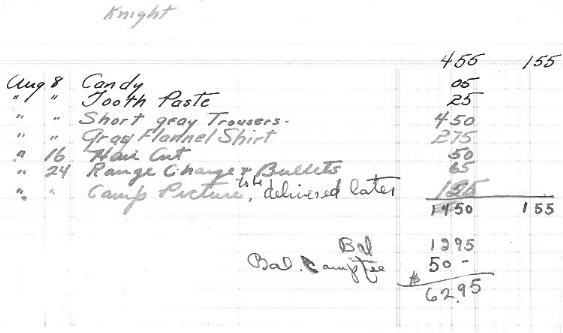 Knight
455 155
Aug 8 Candy 05
" " Tooth Paste 25
" " Short gray Trousers. 450
" " Gray Flannel Shirt 275
" 16 Hair Cut 50
" 24 Range Charge & Bullets 65
" " Camp Picture, to be delivered later 125
1450 155
Bal 1295
Bal. Camp fee 50 -
$ 62.95